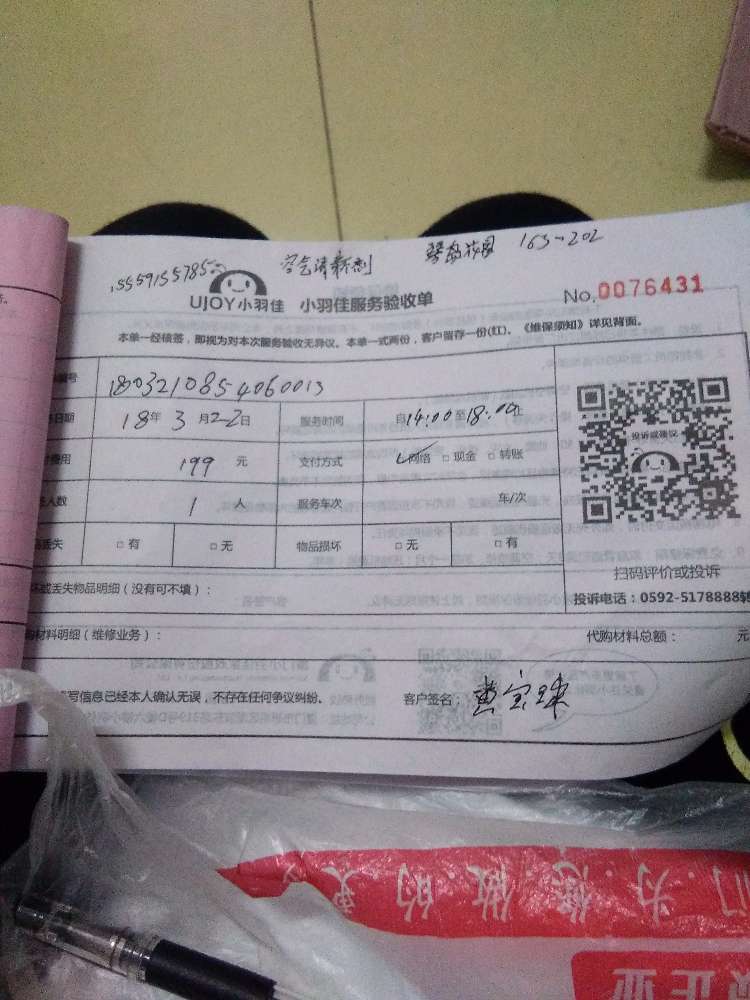 15559155785 空气清新剂 163-202
UJOY小羽佳 小羽佳服务验收单 No.0076431
本单一经核签，即视为对本次服务验收无异议。本单一式两份，客户留存一份(红)、《维保须知》详见背面。
编号 1803210854060013
日期 18年3月22日 服务时间 自14:00至18:00止
费用 199元 支付方式 ☑网络 □现金 □转账
人数 1人 服务车次 车/次
丢失 □有 □无 物品损坏 □无 □有
投诉或建议
扫码评价或投诉
投诉电话：0592-5178888转
坏或丢失物品明细（没有可不填）：
购材料明细（维修业务）： 代购材料总额： 元
写信息已经本人确认无误，不存在任何争议纠纷。 客户签名：黄宝珠
们·为·您·做·的·更
正业